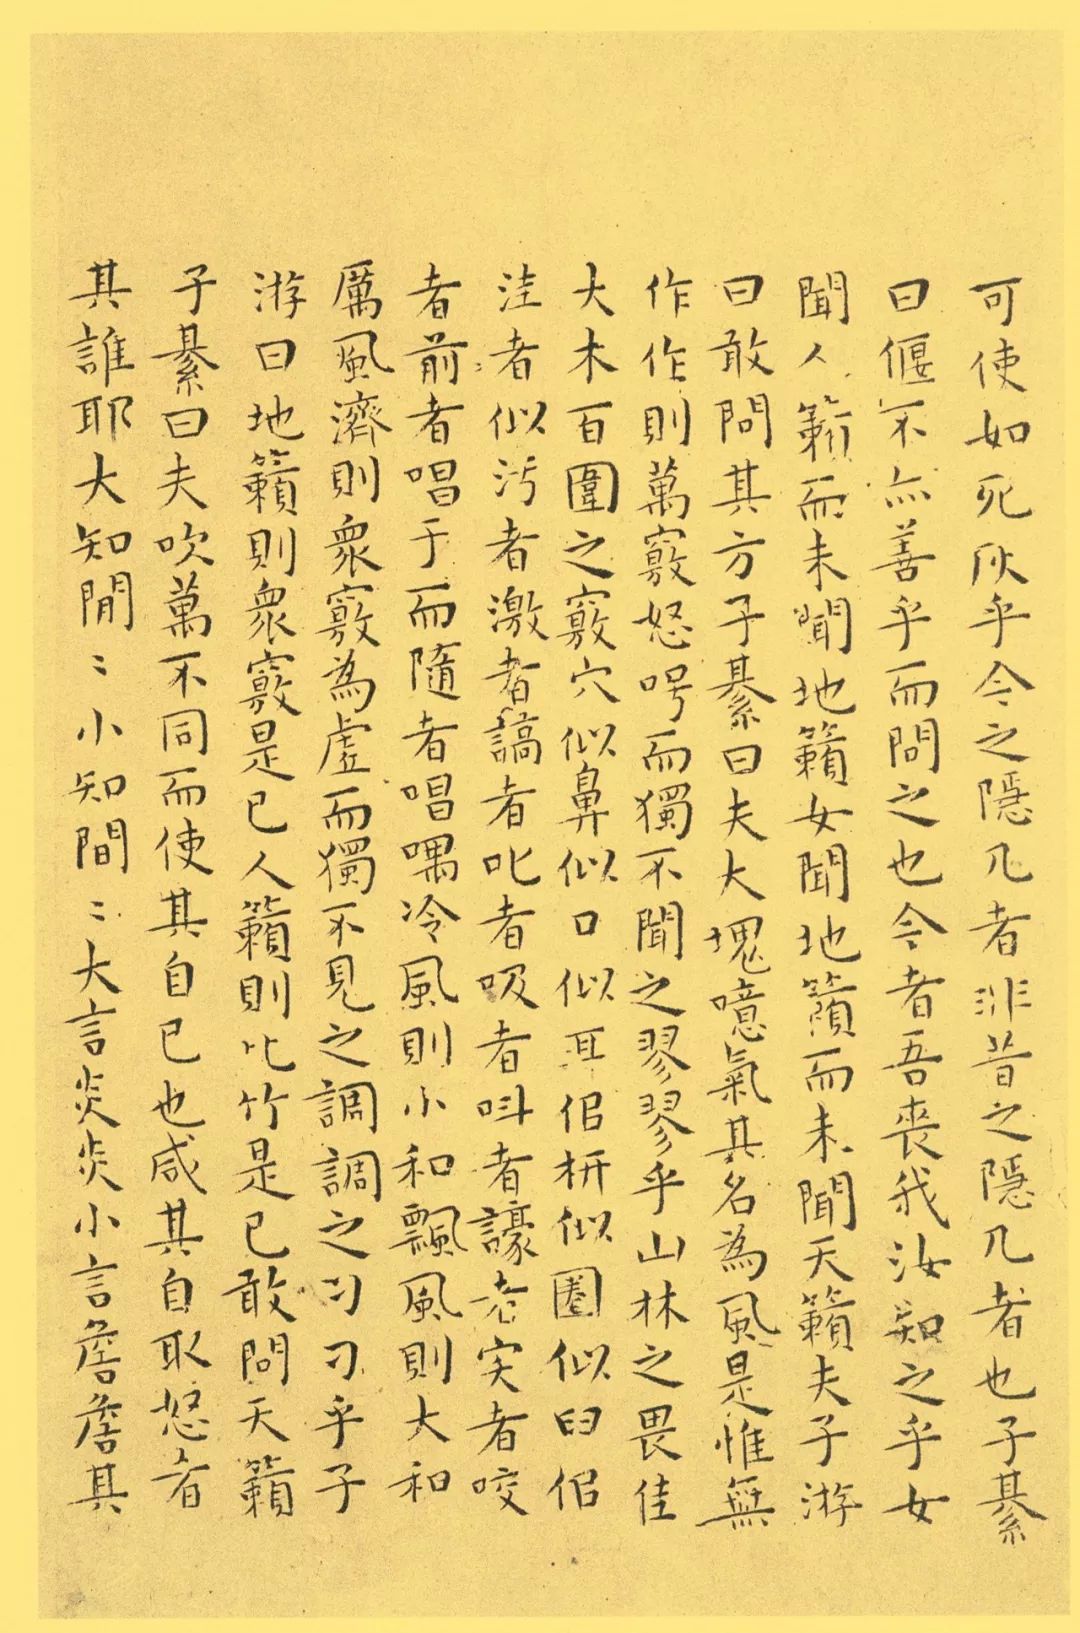 可使如死灰乎今之隱几者非昔之隱几者也子綦
曰偃不亦善乎而問之也今者吾喪我汝知之乎女
聞人籟而未聞地籟女聞地籟而未聞天籟夫子游
曰敢問其方子綦曰夫大塊噫氣其名為風是惟無
作作則萬竅怒呺而獨不聞之翏翏乎山林之畏佳
大木百圍之竅穴似鼻似口似耳侣枅似圈似臼侣
洼者似污者激者謞者叱者吸者叫者譹者宎者咬
者前者唱于而隨者唱喁冷風則小和飄風則大和
厲風濟則衆竅為虛而獨不見之調調之刁刁乎子
游曰地籟則衆竅是已人籟則比竹是已敢問天籟
子綦曰夫吹萬不同而使其自已也咸其自取怒者
其誰耶大知閒〻小知間〻大言炎炎小言詹詹其